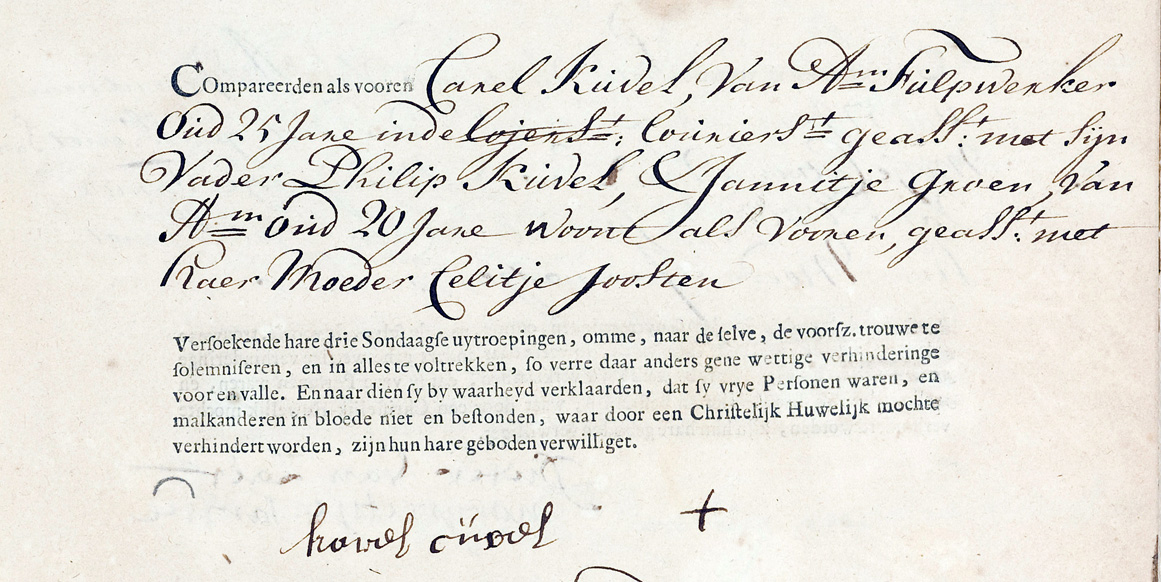 COmpareerden als vooren Carel Kuvel, Van Am Fulpwerker
Oud 25 Jare in de lojerst: Couriers:t geasst: met syn
Vader Philip Kuvel, & Jannitje Groen, Van
Am oud 20 Jare woont als Vooren, geasst: met
haer Moeder Celitje Joosten
Versoekende hare drie Sondaagse uytroepingen, omme, naar de selve, de voorsz. trouwe te
solemniseren, en in alles te voltrekken, so verre daar anders gene wettige verhinderinge
voor en valle. En naar dien sy by waarheyd verklaarden, dat sy vrye Personen waren, en
malkanderen in bloede niet en bestonden, waar door een Christelijk Huwelijk mochte
verhindert worden, zijn hun hare geboden verwilliget.
karel cüvel +